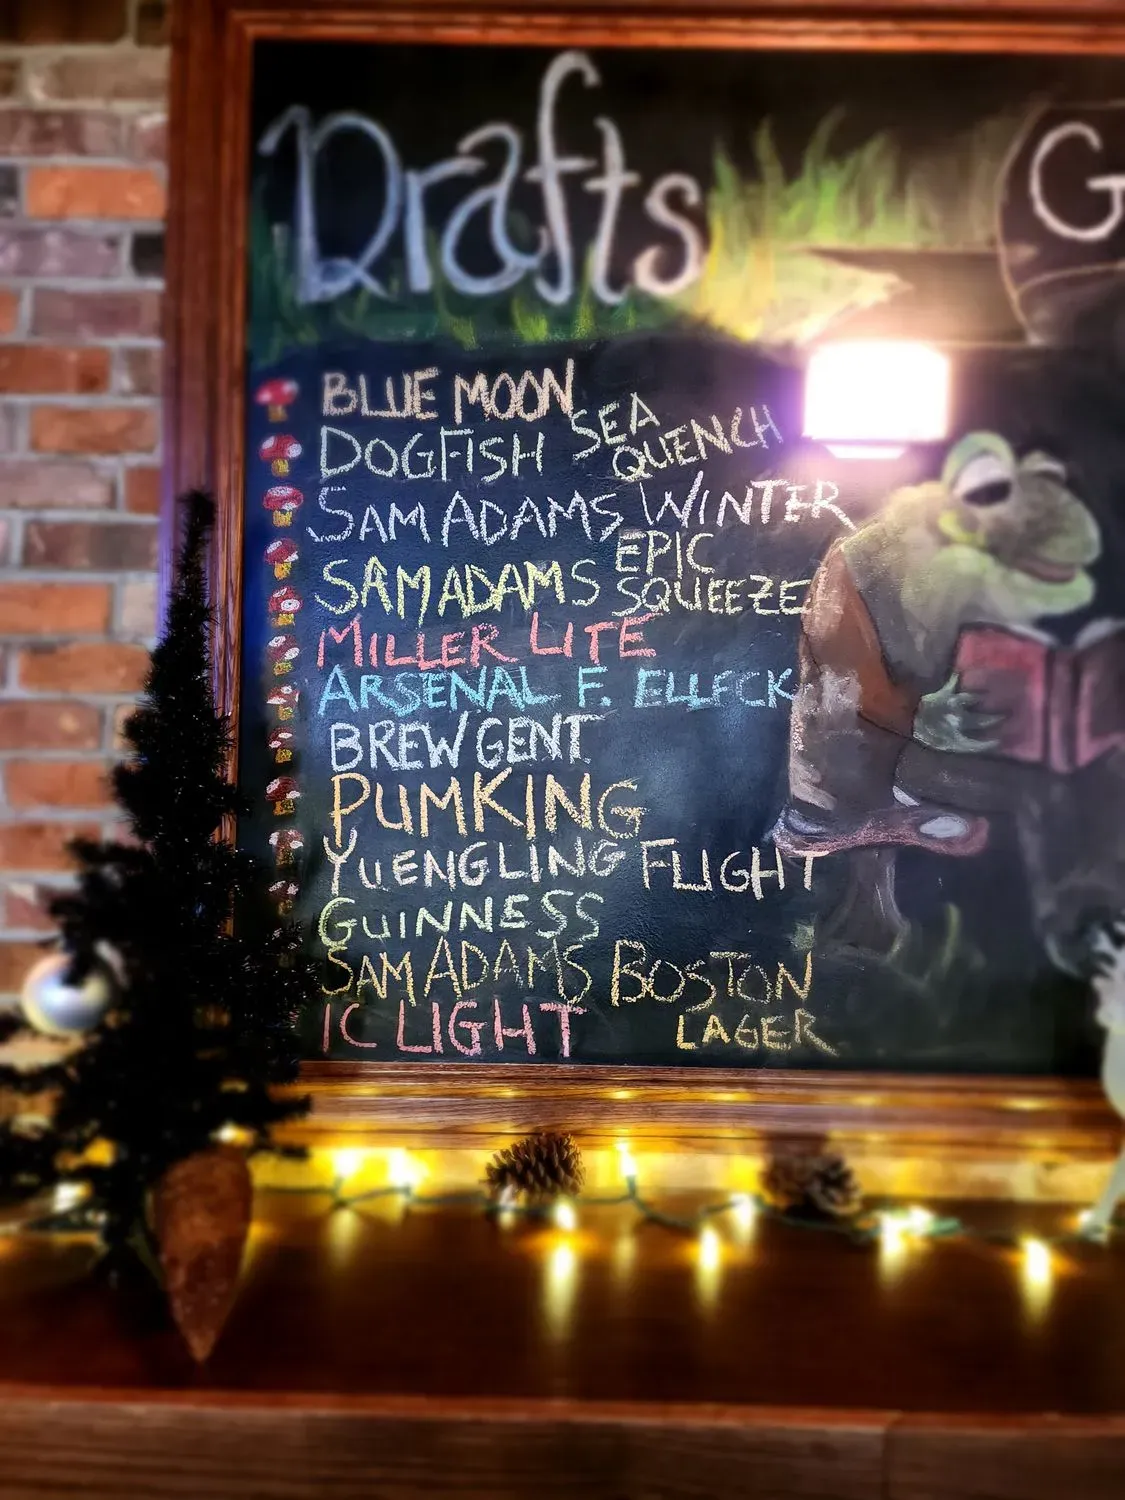 Drafts
G
BLUE MOON
DOGFISH SEA QUENCH
SAM ADAMS WINTER
SAM ADAMS EPIC SQUEEZE
MILLER LITE
ARSENAL F. ELLFCK
BREW GENT
PUMKING
YUENGLING FLIGHT
GUINNESS
SAM ADAMS BOSTON LAGER
IC LIGHT